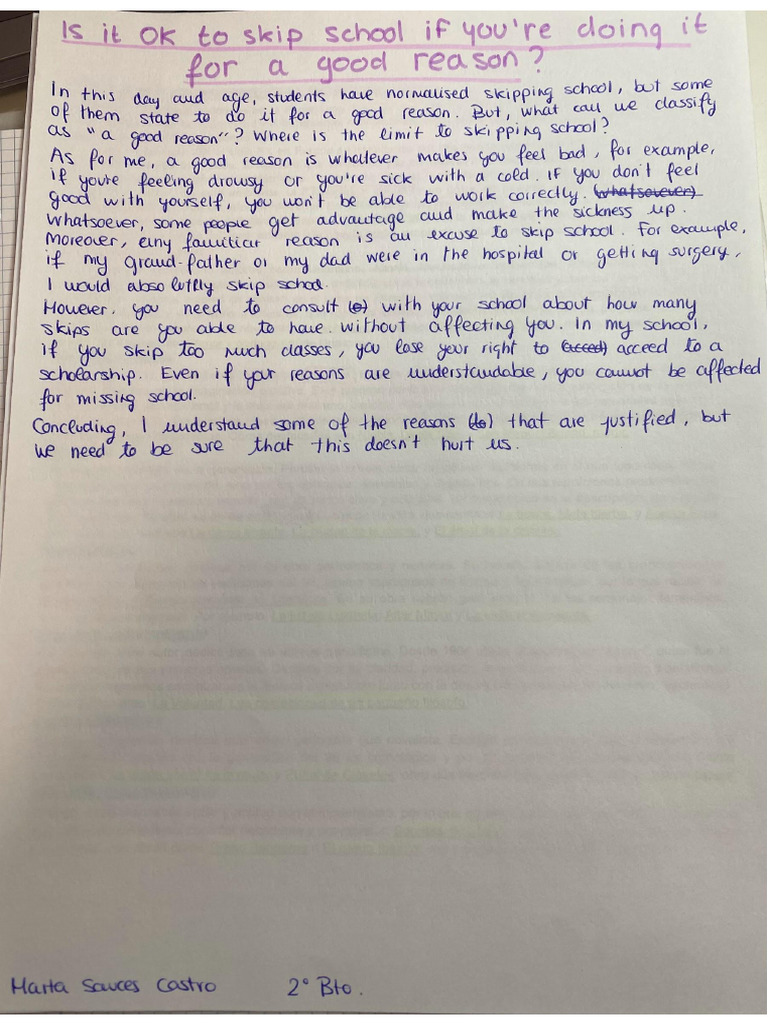 Is it OK to skip school if you're doing it
for a good reason?
In this day and age, students have normalised skipping school, but some
of them state to do it for a good reason. But, what can we classify
as "a good reason"? Where is the limit to skipping school?
As for me, a good reason is whatever makes you feel bad, for example,
if you're feeling drowsy or you're sick with a cold. If you don't feel
good with yourself, you won't be able to work correctly. (whatsoever)
Whatsoever, some people get advantage and make the sickness up.
Moreover, any familiar reason is an excuse to skip school. For example,
if my grand-father or my dad were in the hospital or getting surgery,
I would absolutly skip school.
However, you need to consult (o) with your school about how many
skips are you able to have without affecting you. In my school,
if you skip too much classes, you lose your right to (acced) acceed to a
scholarship. Even if your reasons are understandable, you cannot be affected
for missing school.
Concluding, I understand some of the reasons (to) that are justified, but
we need to be sure that this doesn't hurt us.
Marta Sauces Castro 2º Bto.